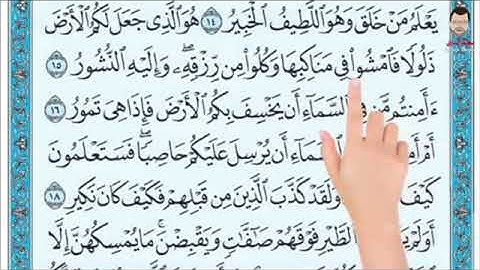 يَعْلَمُ مَنْ خَلَقَ وَهُوَ ٱللَّطِيفُ ٱلْخَبِيرُ ١٤ هُوَ ٱلَّذِى جَعَلَ لَكُمُ ٱلْأَرْضَ
ذَلُولًا فَٱمْشُوا۟ فِى مَنَاكِبِهَا وَكُلُوا۟ مِن رِّزْقِهِۦ ۖ وَإِلَيْهِ ٱلنُّشُورُ ١٥
ءَأَمِنتُم مَّن فِى ٱلسَّمَآءِ أَن يَخْسِفَ بِكُمُ ٱلْأَرْضَ فَإِذَا هِىَ تَمُورُ ١٦
أَمْ أَمِ ٱلسَّمَآءِ أَن يُرْسِلَ عَلَيْكُمْ حَاصِبًا ۖ فَسَتَعْلَمُونَ
كَيْفَ وَلَقَدْ كَذَّبَ ٱلَّذِينَ مِن قَبْلِهِمْ فَكَيْفَ كَانَ نَكِيرِ ١٨
أَوَلَمْ ٱلطَّيْرِ فَوْقَهُمْ صَٰٓفَّٰتٍ وَيَقْبِضْنَ ۚ مَا يُمْسِكُهُنَّ إِلَّا